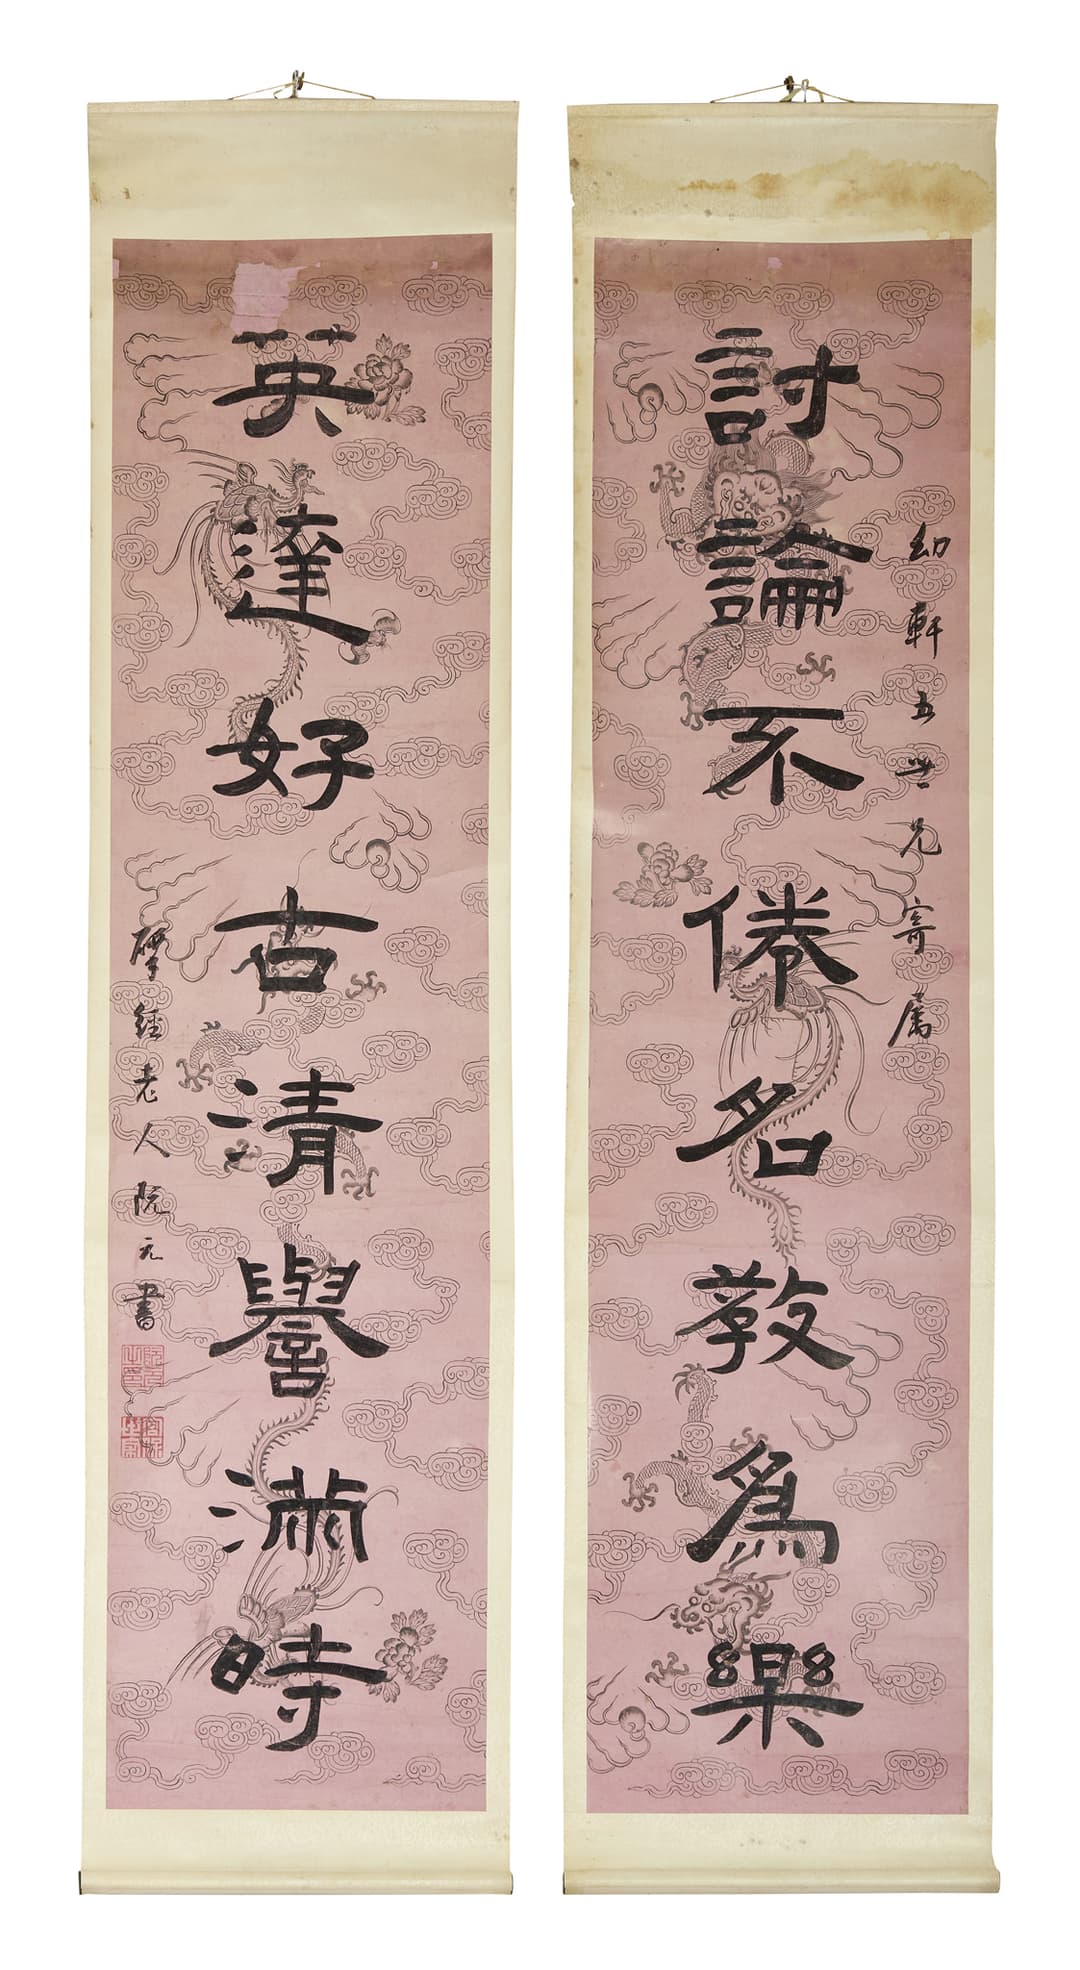 幼軒五世兄寄属
討論不倦名教爲樂
英達好古清譽滿時
揅經老人阮元書
阮元之印